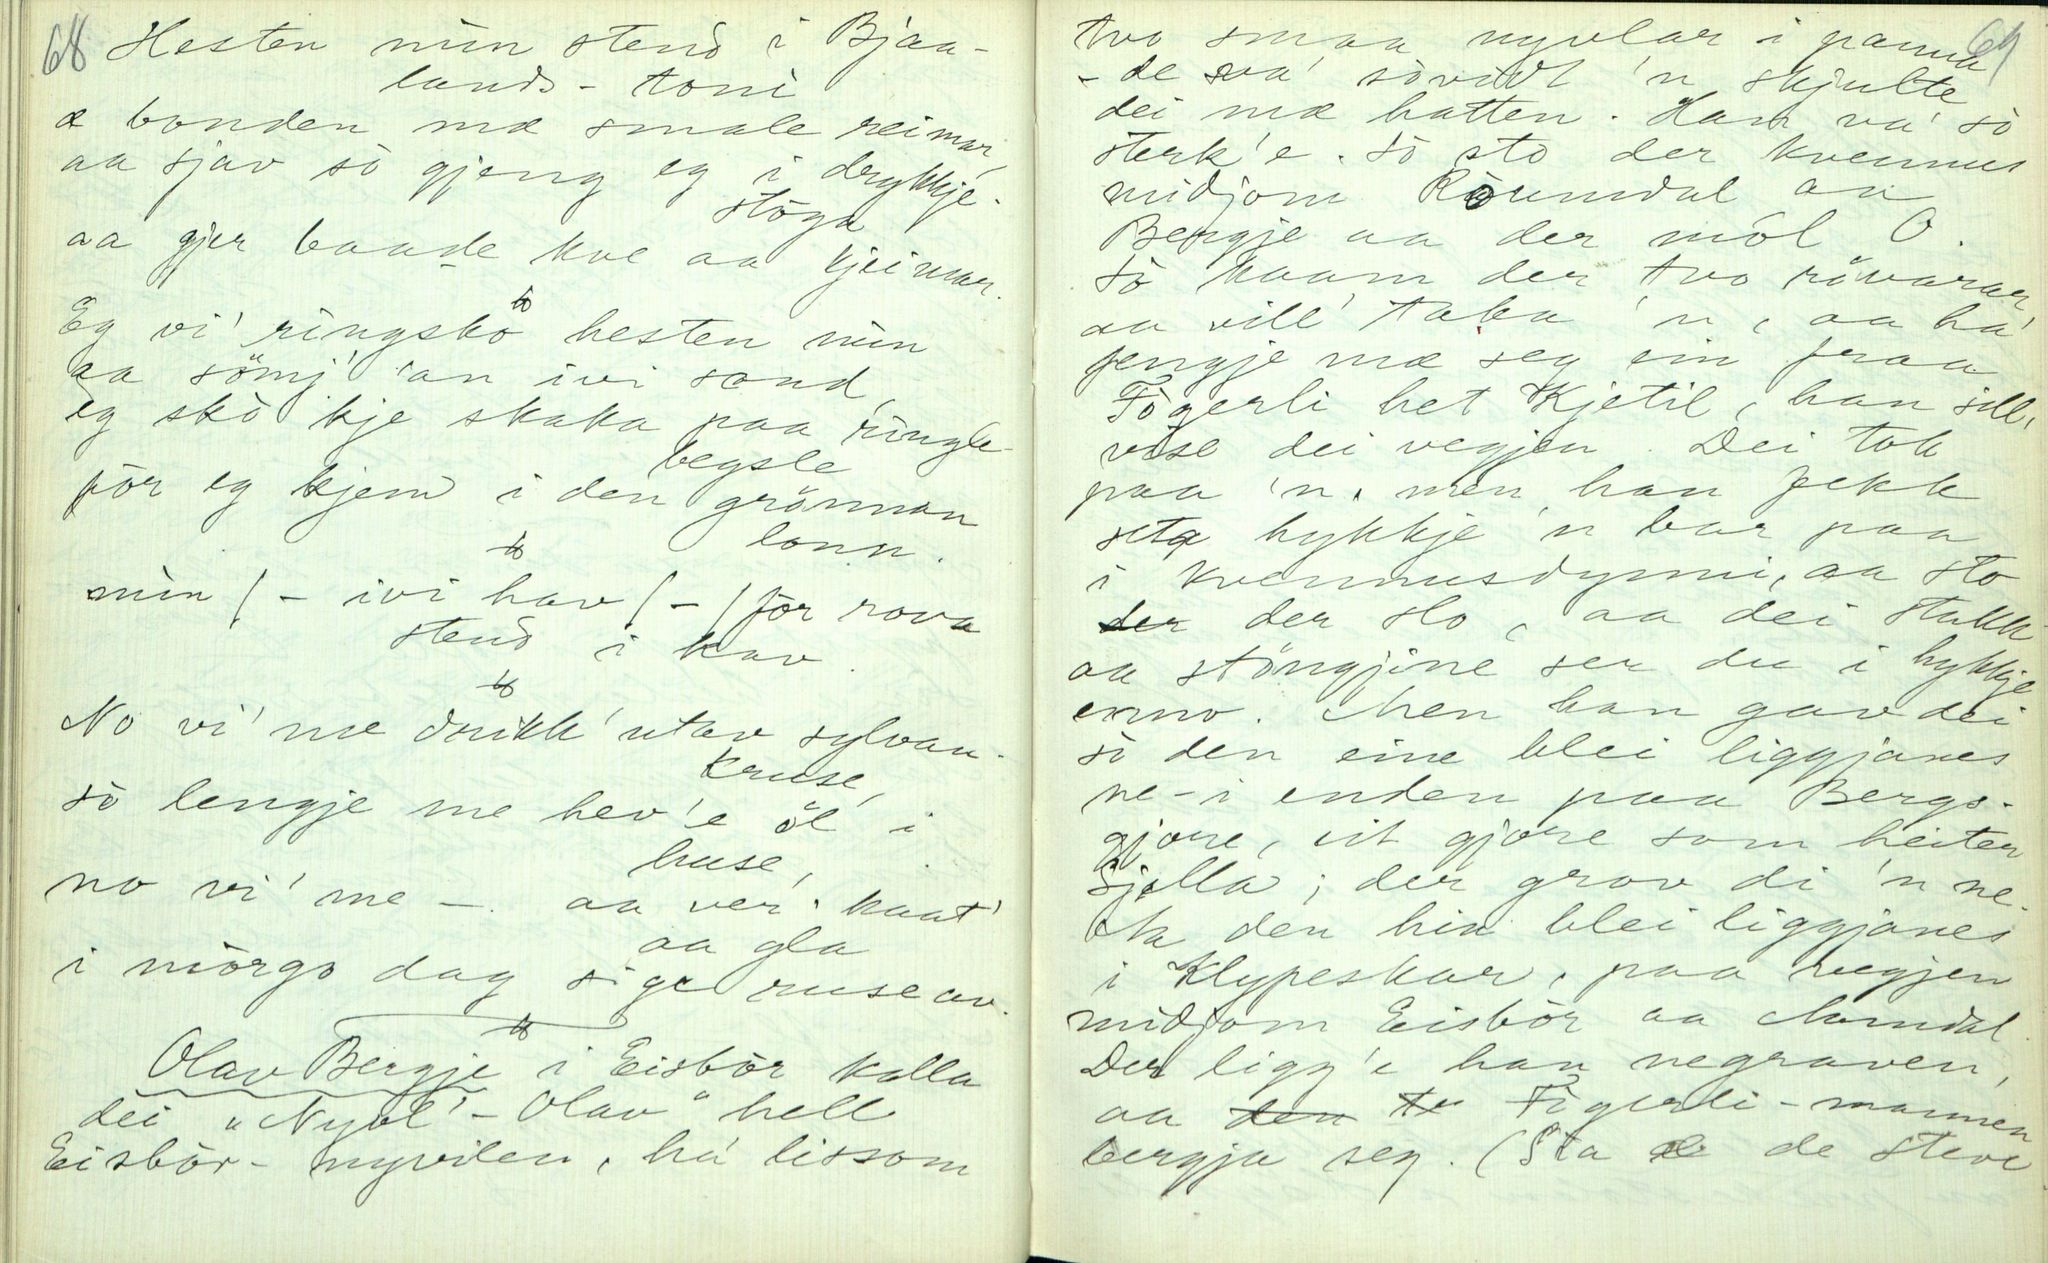 68
Hesten min stend i Bjaa-
lands-toni
æ bonden mæ smale reimar,
aa sjav sò gjeng eg i drykkje-
stòga
aa gjer baade kve aa kjeimar.
Eg vi' ringsko hesten min
aa sömj' 'an ivi sand,
eg skò kje skaka paa ringle-
begsle
fòr eg kjem i den grönnan
lonn.
min / - ivi hav / - / fòr rova
stend i kav.
No vi' me drikk' utav sylvan-
kruse,
sò lengje me hev'e öl i
huse,
no vi' me - aa ver' kaat'
aa gla
i mòrgo dag sige ruse av.
Olav Bergje i Eisbòr kalla
dei "Nyvl'-Olav" hell
Eisbòr-nyvilen, há lissom
69
tvo smaa nyvlar i panna
- de va' sòvidt 'n skjulte
dei mæ hatten. Han va' sò
sterk'e. Sò sto der kvennus
midjomRòumdal aa
Bergje aa der mól O.
Sò kaam der tvo röivarar
aa vill' taka 'n, aa ha'
fengje mæ seg ein fraa
Fògerli het Kjetil, han sill'
vise dei vegjen. Dei tok
paa 'n, men han fekk
seta hykkje 'n bar paa
i kvennusdynni, aa sto
der slo, aa dei stakk
aa stöngjine ser du i hykkje
enno. Men han gav dei
sò den eine blei liggjanes
ne-i enden paa Bergs-
gjore, eit gjore som heiter
Sjella; der grov di 'n ne.
Aa den hin blei liggjanes
i Klypeskar, paa vegjen
midjom Eisbòr aa Mondal.
Der ligg'e han negraven,
aa Fògerli-mannen
bergja seg. (Sta æ de steve